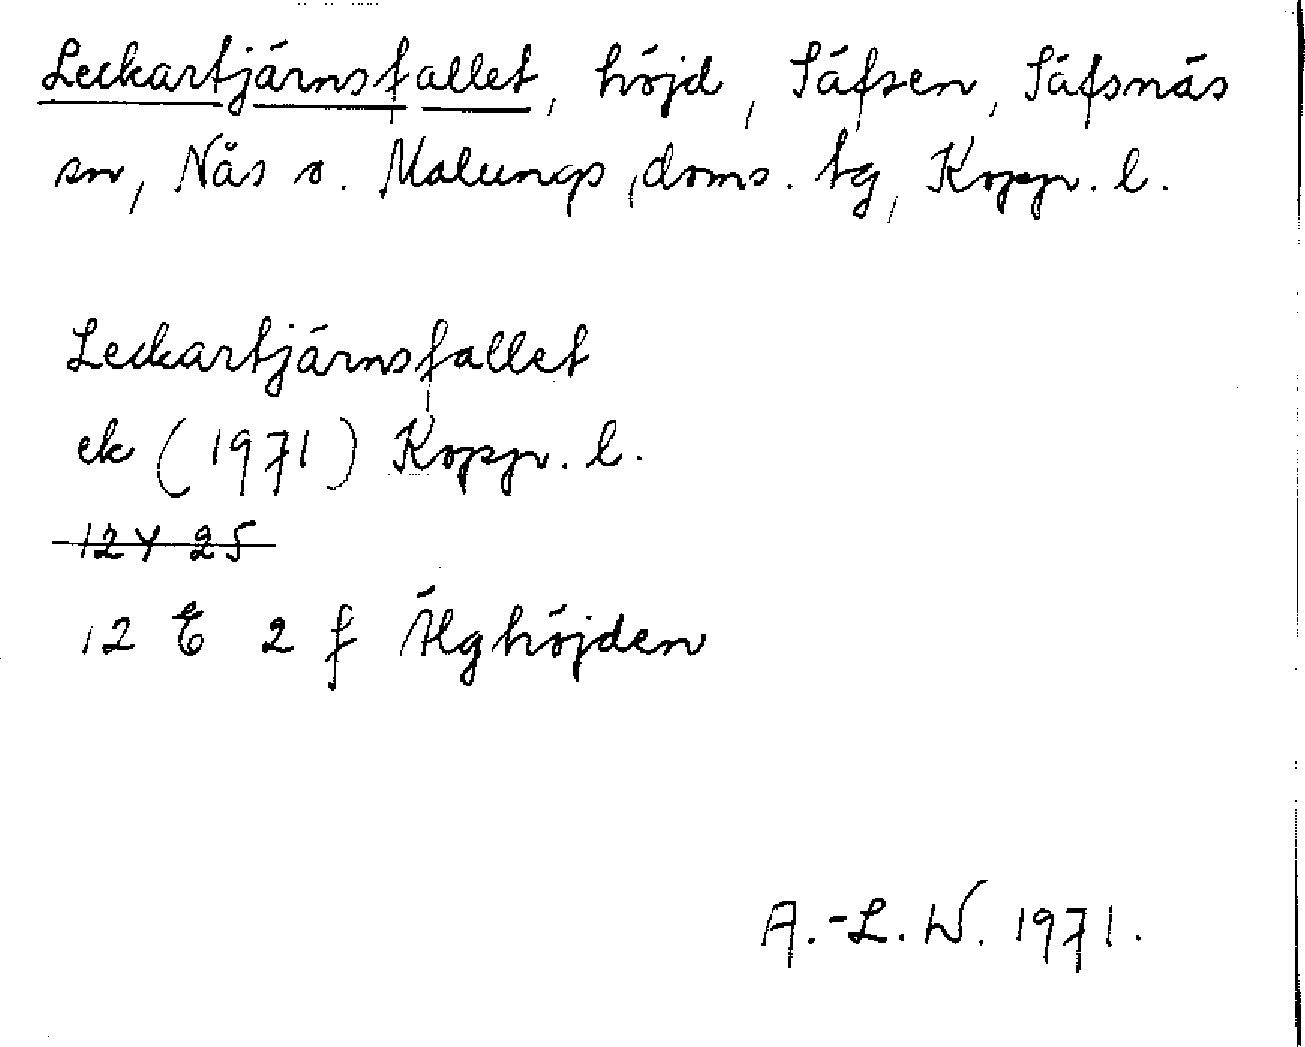 Leckartjärnsfallet, höjd, Säfsen, Säfsnäs
sn, Nås o. Malungs doms. tg, Koppr. l.
Leckartjärnsfallet
ek (1971) Koppr. l.
12 Y 25
12 E 2 f Älghöjden
A.-L. W. 1971.